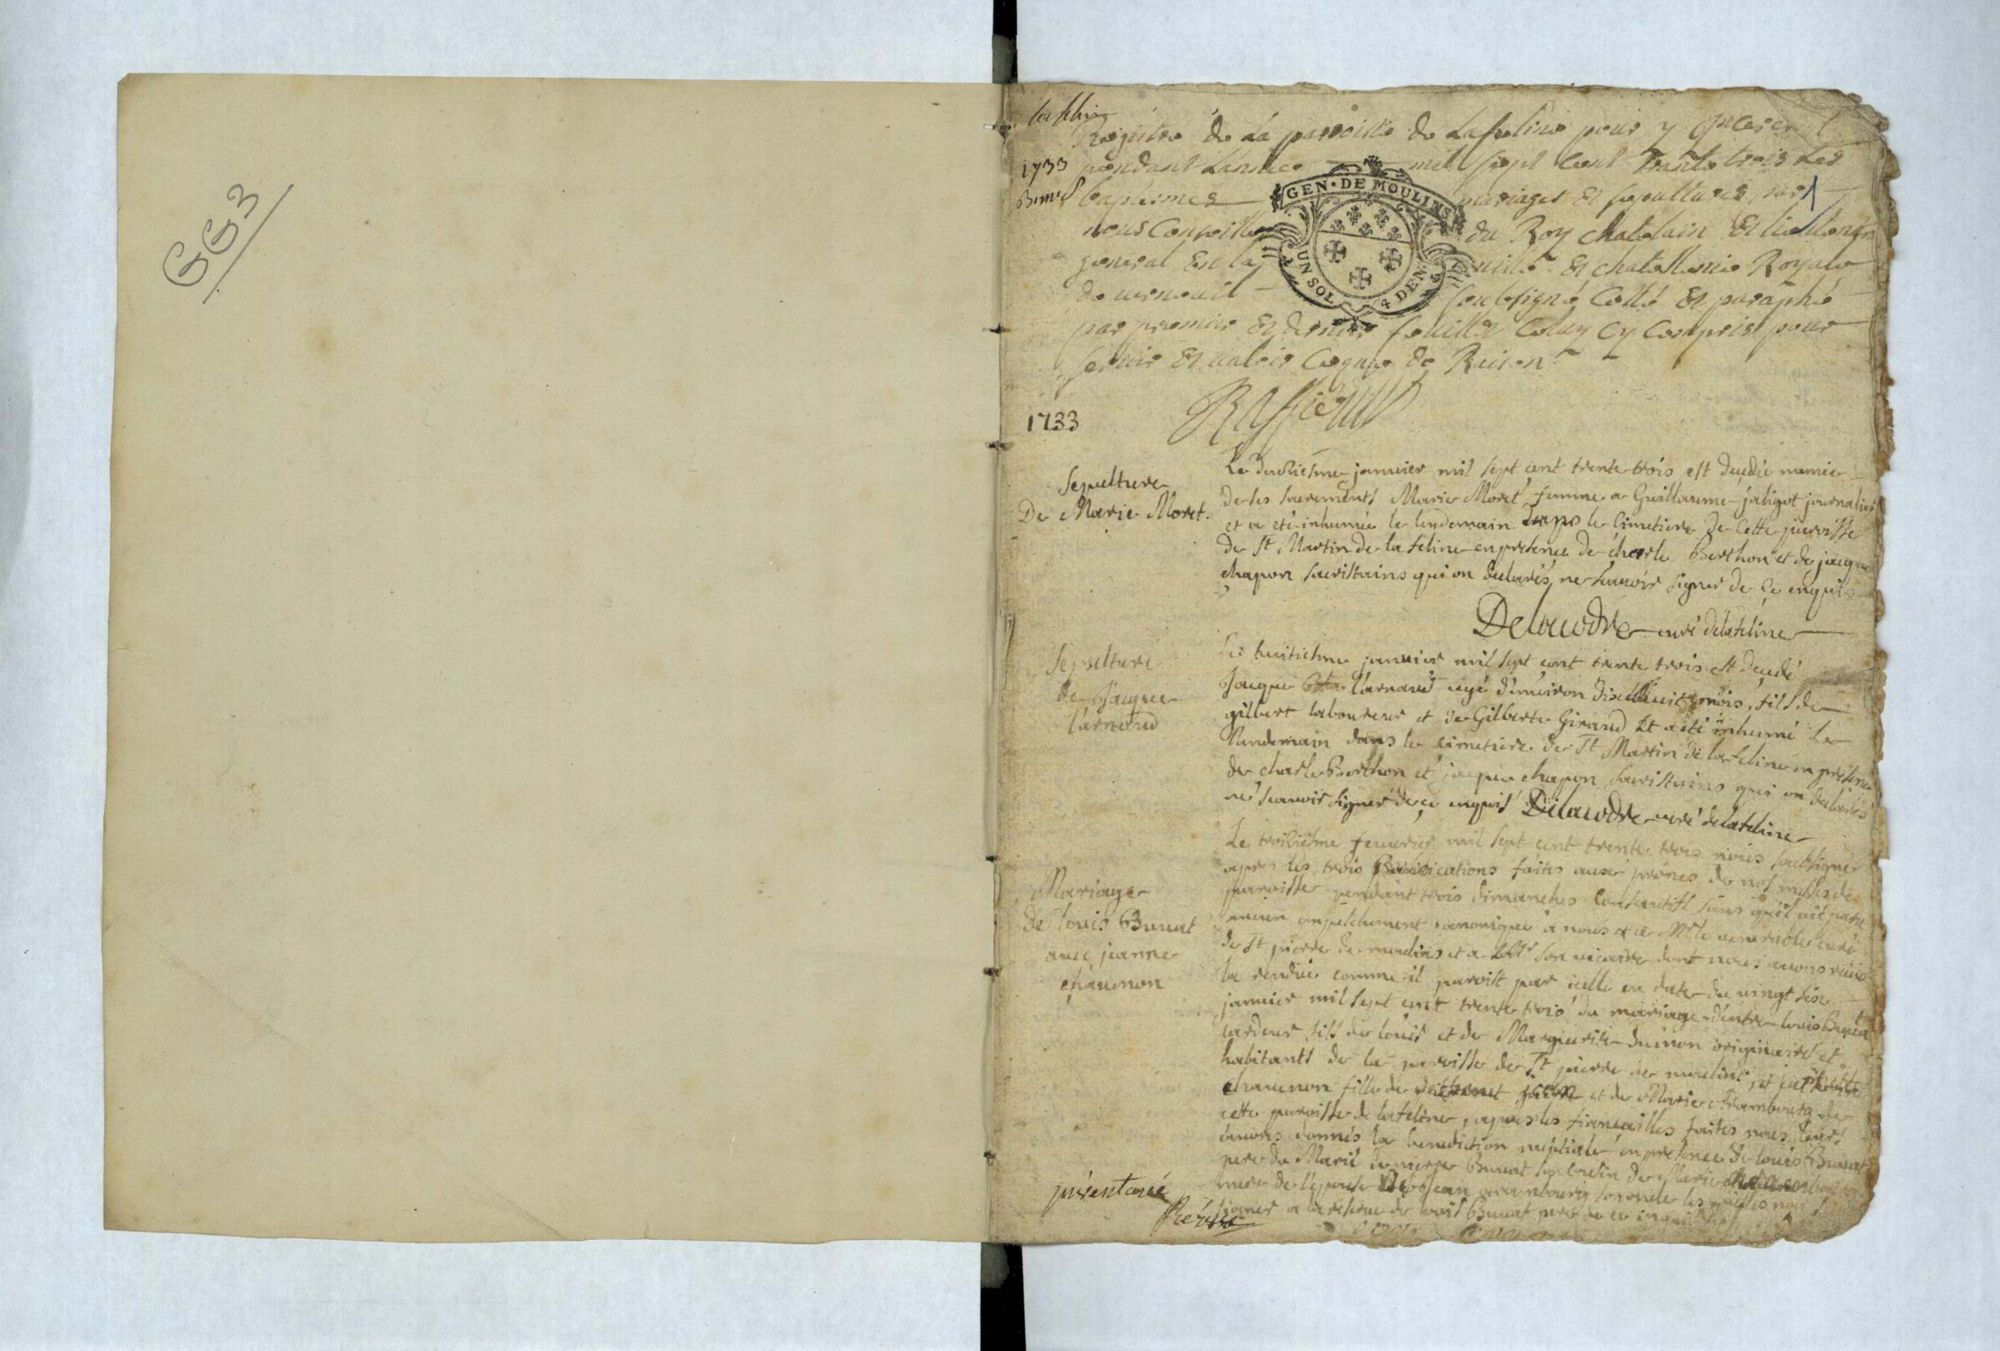 GG3
Registre de la paroisse de Lafeline pour y
1733 pendant l'année mil sept cent trente trois les
baptesmes mariages et sepultures par 1
nous Conseiller du Roy chatelain et lieutenant
general en la ville et chatellenie Royale
de verneuil soubsigné Cotté et paraphé
par premier et dernier feuillet Celuy cy compris pour
servir et valoir Ce que de Raison
GEN · DE MOULINS
UN SOL 4 DEN.
1733
Sepulture
De Marie Moret.
Le janvier mil sept cent trente trois est décédée munie
de ses sacrements Marie Moret femme a Guillaume jaligot journalier
et a eté inhumée le lendemain dans le Cimetiere de Cette paroisse
de St Martin de la feline en presence de charle Berthon et de jacque
chapon sacristains qui on declarés ne scavoir signer de ce enquis
Delaudre curé delafeline
Sepulture
de Jacque
l'arnaud
Le huitiesme janvier mil sept cent trente trois est décédé
Jacque l'arnaud agé d'environ dixhuit mois, fils de
gilbert laboureur et de Gilberte Giraud et a eté inhumé le
l'andemain dans le cimetiere de St Martin de lafeline en presence
de charle Berthon et jacque chapon sacristains qui on declarés
ne scavoir signer de ce enquis Delaudre curé delafeline
Mariage
de louis Bunat
avec jeanne
chaumon
Le troisiesme fevrier mil sept cent trente trois nous soubsigné
apres les trois Banications faites aux prones de nos messes de
paroisse pendant trois dimanches Consecutifs sans qu'il ait paru
aucun empeschement canonique a nous et a Mr le venerable curé
de St pierre de moulins et a son vicaire dont nous avons
la rendue comme il paroist par icelle en date du vingt six
janvier mil sept cent trente trois du mariage d'entre louis Bunat
cardeur fils de louis et de Margueritte originaire et
habitants de la paroisse de St pierre de moulins, et
chaumon fille de et de Marie arambourg de
cette paroisse de lafeline, apres les fiancailles faites nous leurs
avons donnés la benediction nuptiale en presence de louis Bunat
pere du Marié de Bunat de Marie
mere de l'epouse de jean arambourg son oncle les quels
signer a la reserve de louis Bunat pere de ce enquis